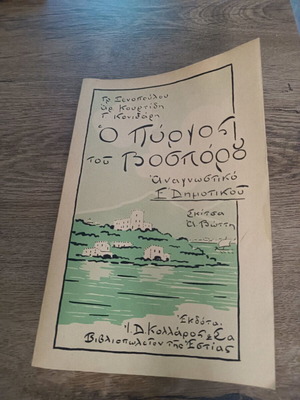 Γρ. Ξενοπούλου
Αρ. Κουρτίδη
Γ. Κονιδάρη
Ὁ Πύργος
τοῦ Βοσπόρου
Ἀναγνωστικὸ
Δημοτικοῦ
Σκίτσα
Βώττη
Ἐκδόται
Ι.Δ. Κολλάρος & Σία
Βιβλιοπωλεῖον τῆς Ἑστίας